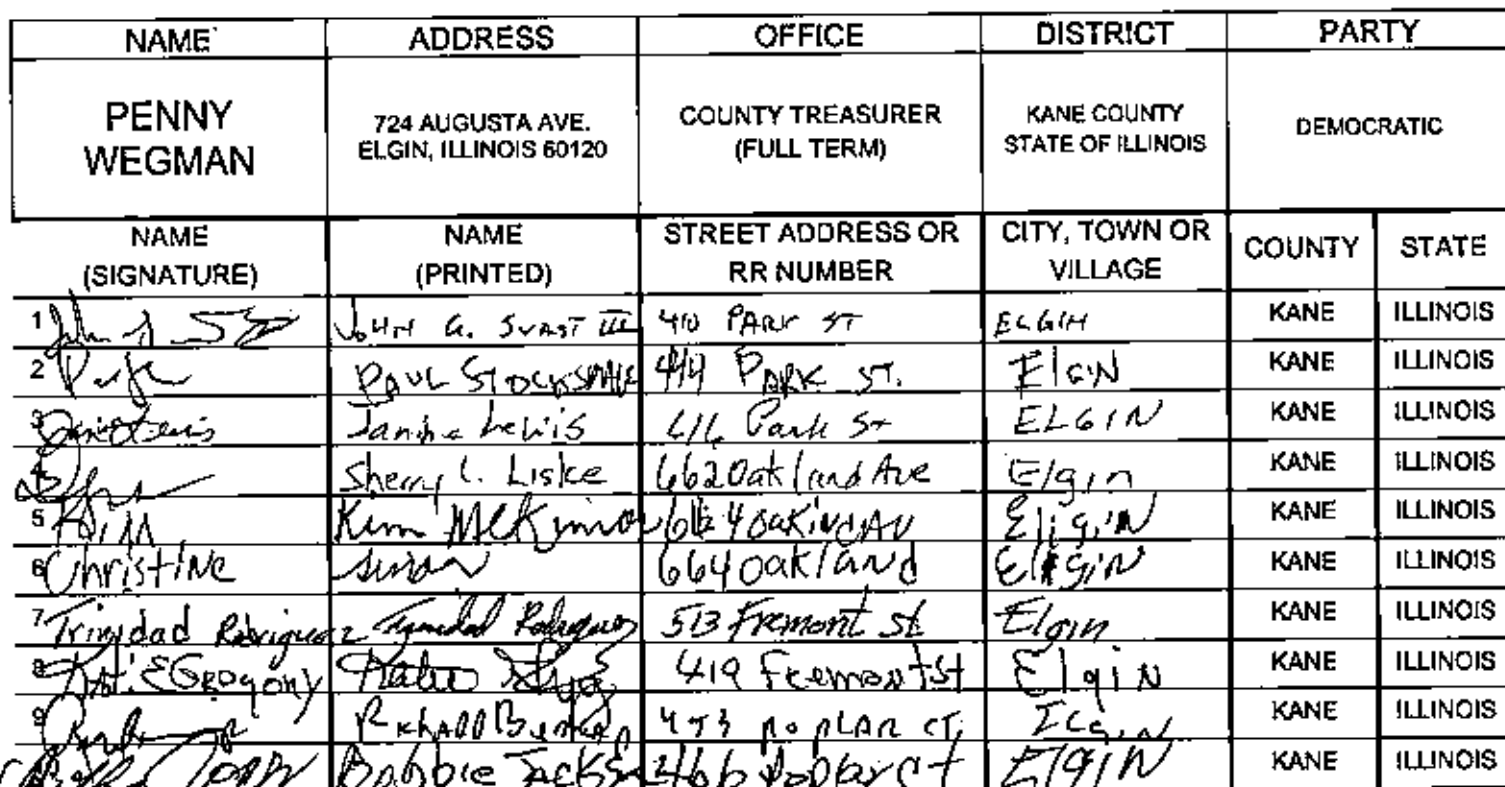 NAME ADDRESS OFFICE DISTRICT PARTY
PENNY WEGMAN
724 AUGUSTA AVE.
ELGIN, ILLINOIS 60120
COUNTY TREASURER
(FULL TERM)
KANE COUNTY
STATE OF ILLINOIS
DEMOCRATIC
NAME
(SIGNATURE)
NAME
(PRINTED)
STREET ADDRESS OR
RR NUMBER
CITY, TOWN OR
VILLAGE
COUNTY STATE
1 JOHN G. SVAST III 410 PARK ST ELGIN KANE ILLINOIS
2 PAUL 414 PARK ST. ElgiN KANE ILLINOIS
3 Lewis Park St ELGIN KANE ILLINOIS
4 Sherry L. Liske 662 Oakland Ave Elgin KANE ILLINOIS
5 Kim KANE ILLINOIS
6 ChristiNe 664 oaklaNd KANE ILLINOIS
7 Trinidad Rodriguez Trinidad Rodriguez 513 Fremont St Elgin KANE ILLINOIS
8 419 Fremont St ElgiN KANE ILLINOIS
9 CT. KANE ILLINOIS
Bobbie 466 Poplar Ct ElgiN KANE ILLINOIS